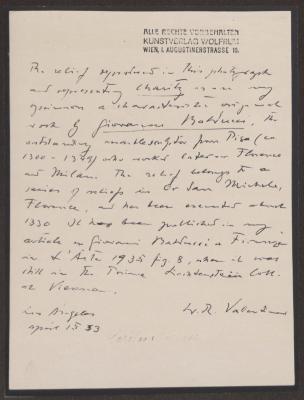 ALLE RECHTE VORBEHALTEN
KUNSTVERLAG WOLFRUM
WIEN, I. AUGUSTINERSTRASSE 10.
The relief reproduced in this photograph
and representing Charity is in my
opinion a characteristic original
work by Giovanni Balducci, the
outstanding marblesculptor from Pisa (ca
1300 - ) who worked later in Florence
and Milan. The relief belongs to a
series of reliefs in Or San Michele,
Florence, and has been executed about
1330. It has been published in my
article on Giovanni Balducci a Firenze
in L'Arte 1935 fig. 8, when it was
still in the Prince Liechtenstein Coll.
at Vienna.
Los Angeles
April 15 53
W. R. Valentiner